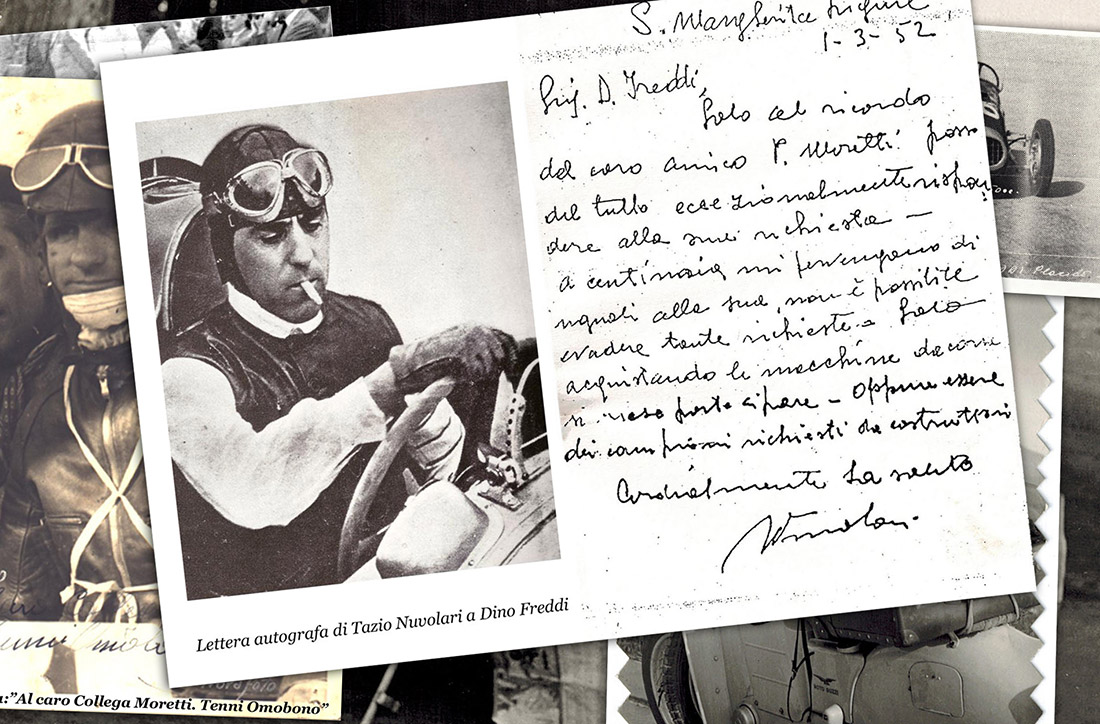 S. Margherita Ligure
1-3-52
Sig. D. Freddi,
Solo al ricordo
del caro amico P. Moretti posso
del tutto eccezionalmente rispon
dere alla sua richiesta -
a centinaia mi pervengono di
uguali alla sua, non è possibile
evadere tante richieste - Solo
acquistando le macchine da corse
si partecipare - oppure essere
dei campioni richiesti da costruttori
Cordialmente La saluto
Nuvolari
Lettera autografa di Tazio Nuvolari a Dino Freddi
a:”Al caro Collega Moretti. Tenni Omobono”
MOTO GUZZI